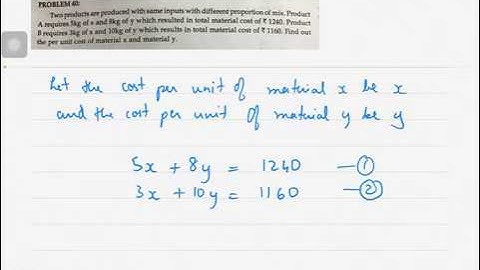 PROBLEM 40:
Two products are produced with same inputs with different proportion of mix. Product
A requires 5kg of x and 8kg of y which resulted in total material cost of ₹ 1240. Product
B requires 3kg of x and 10kg of y which results in total material cost of ₹ 1160. Find out
the per unit cost of material x and material y.
Let the cost per unit of material x be x
and the cost per unit of material y be y
5x + 8y = 1240 —①
3x + 10y = 1160 —②